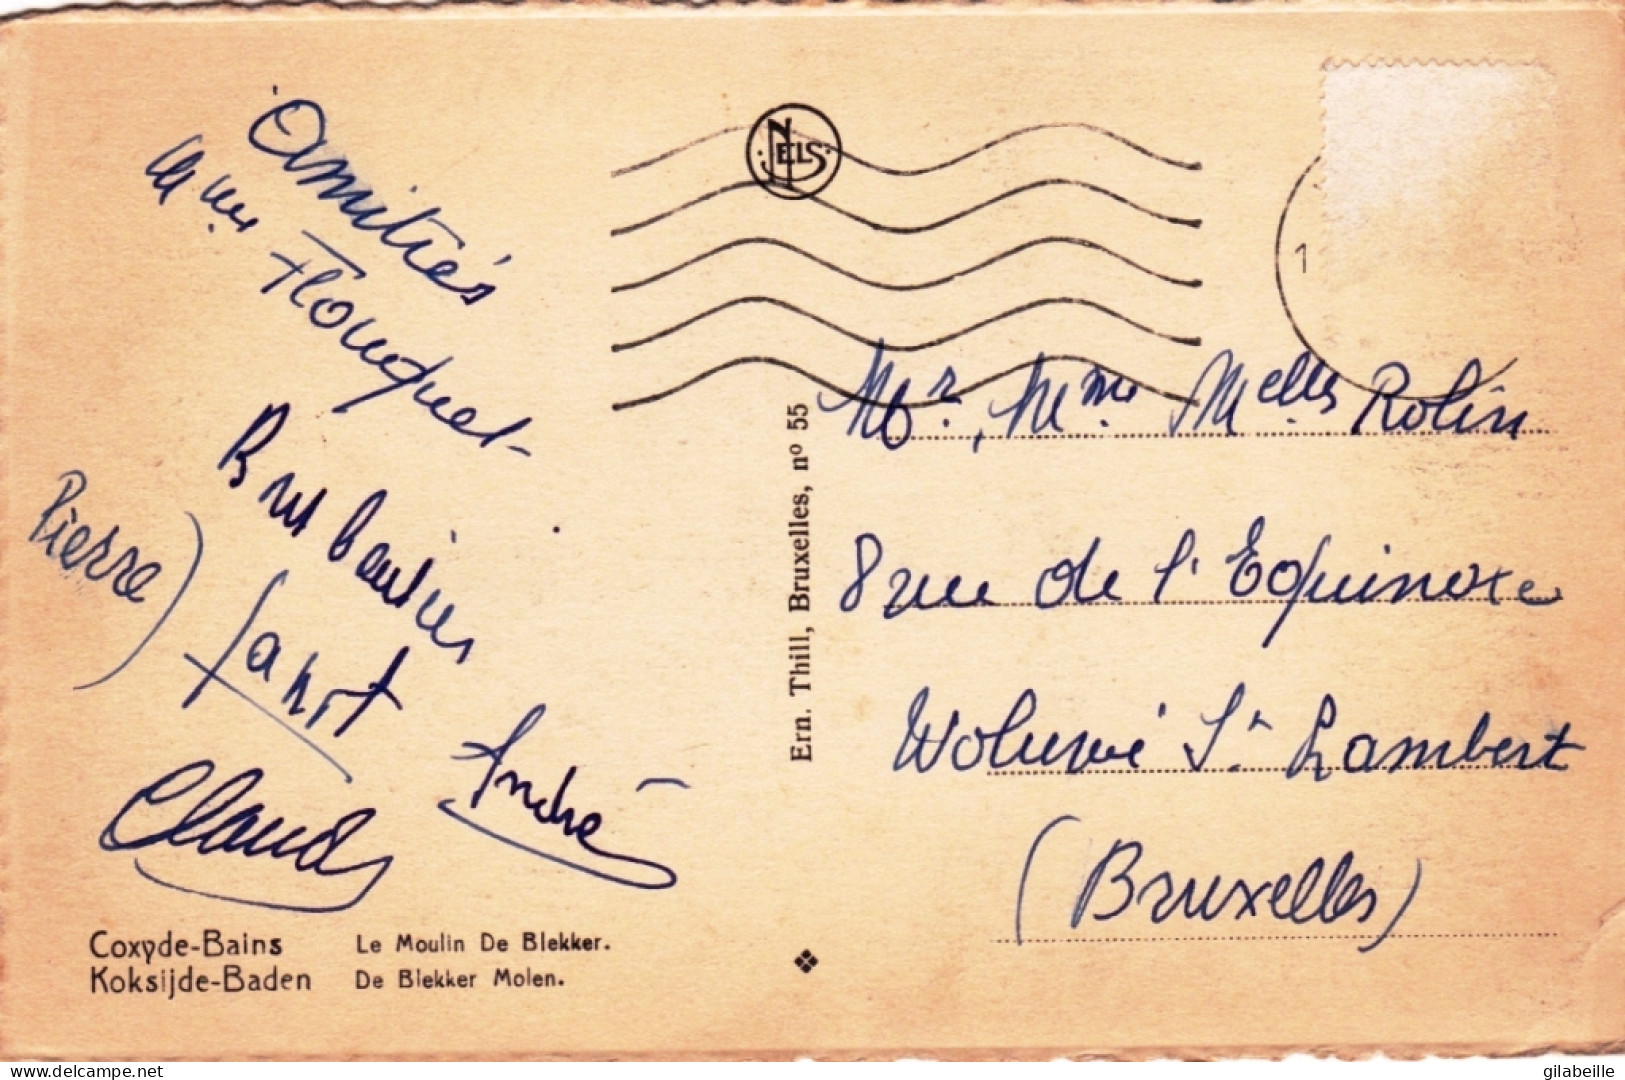 Amitiés
Mme Flouquet
Pierre)
Janot
André
Claude
Coxyde-Bains Le Moulin De Blekker.
Koksijde-Baden De Blekker Molen.
NELS
Ern. Thill, Bruxelles, nº 55
1
Mr. , Mme. Melles. Rolin
8 rue de l'Equinoxe
Woluwé St. Lambert
(Bruxelles)
delcampe.net
gilabeille